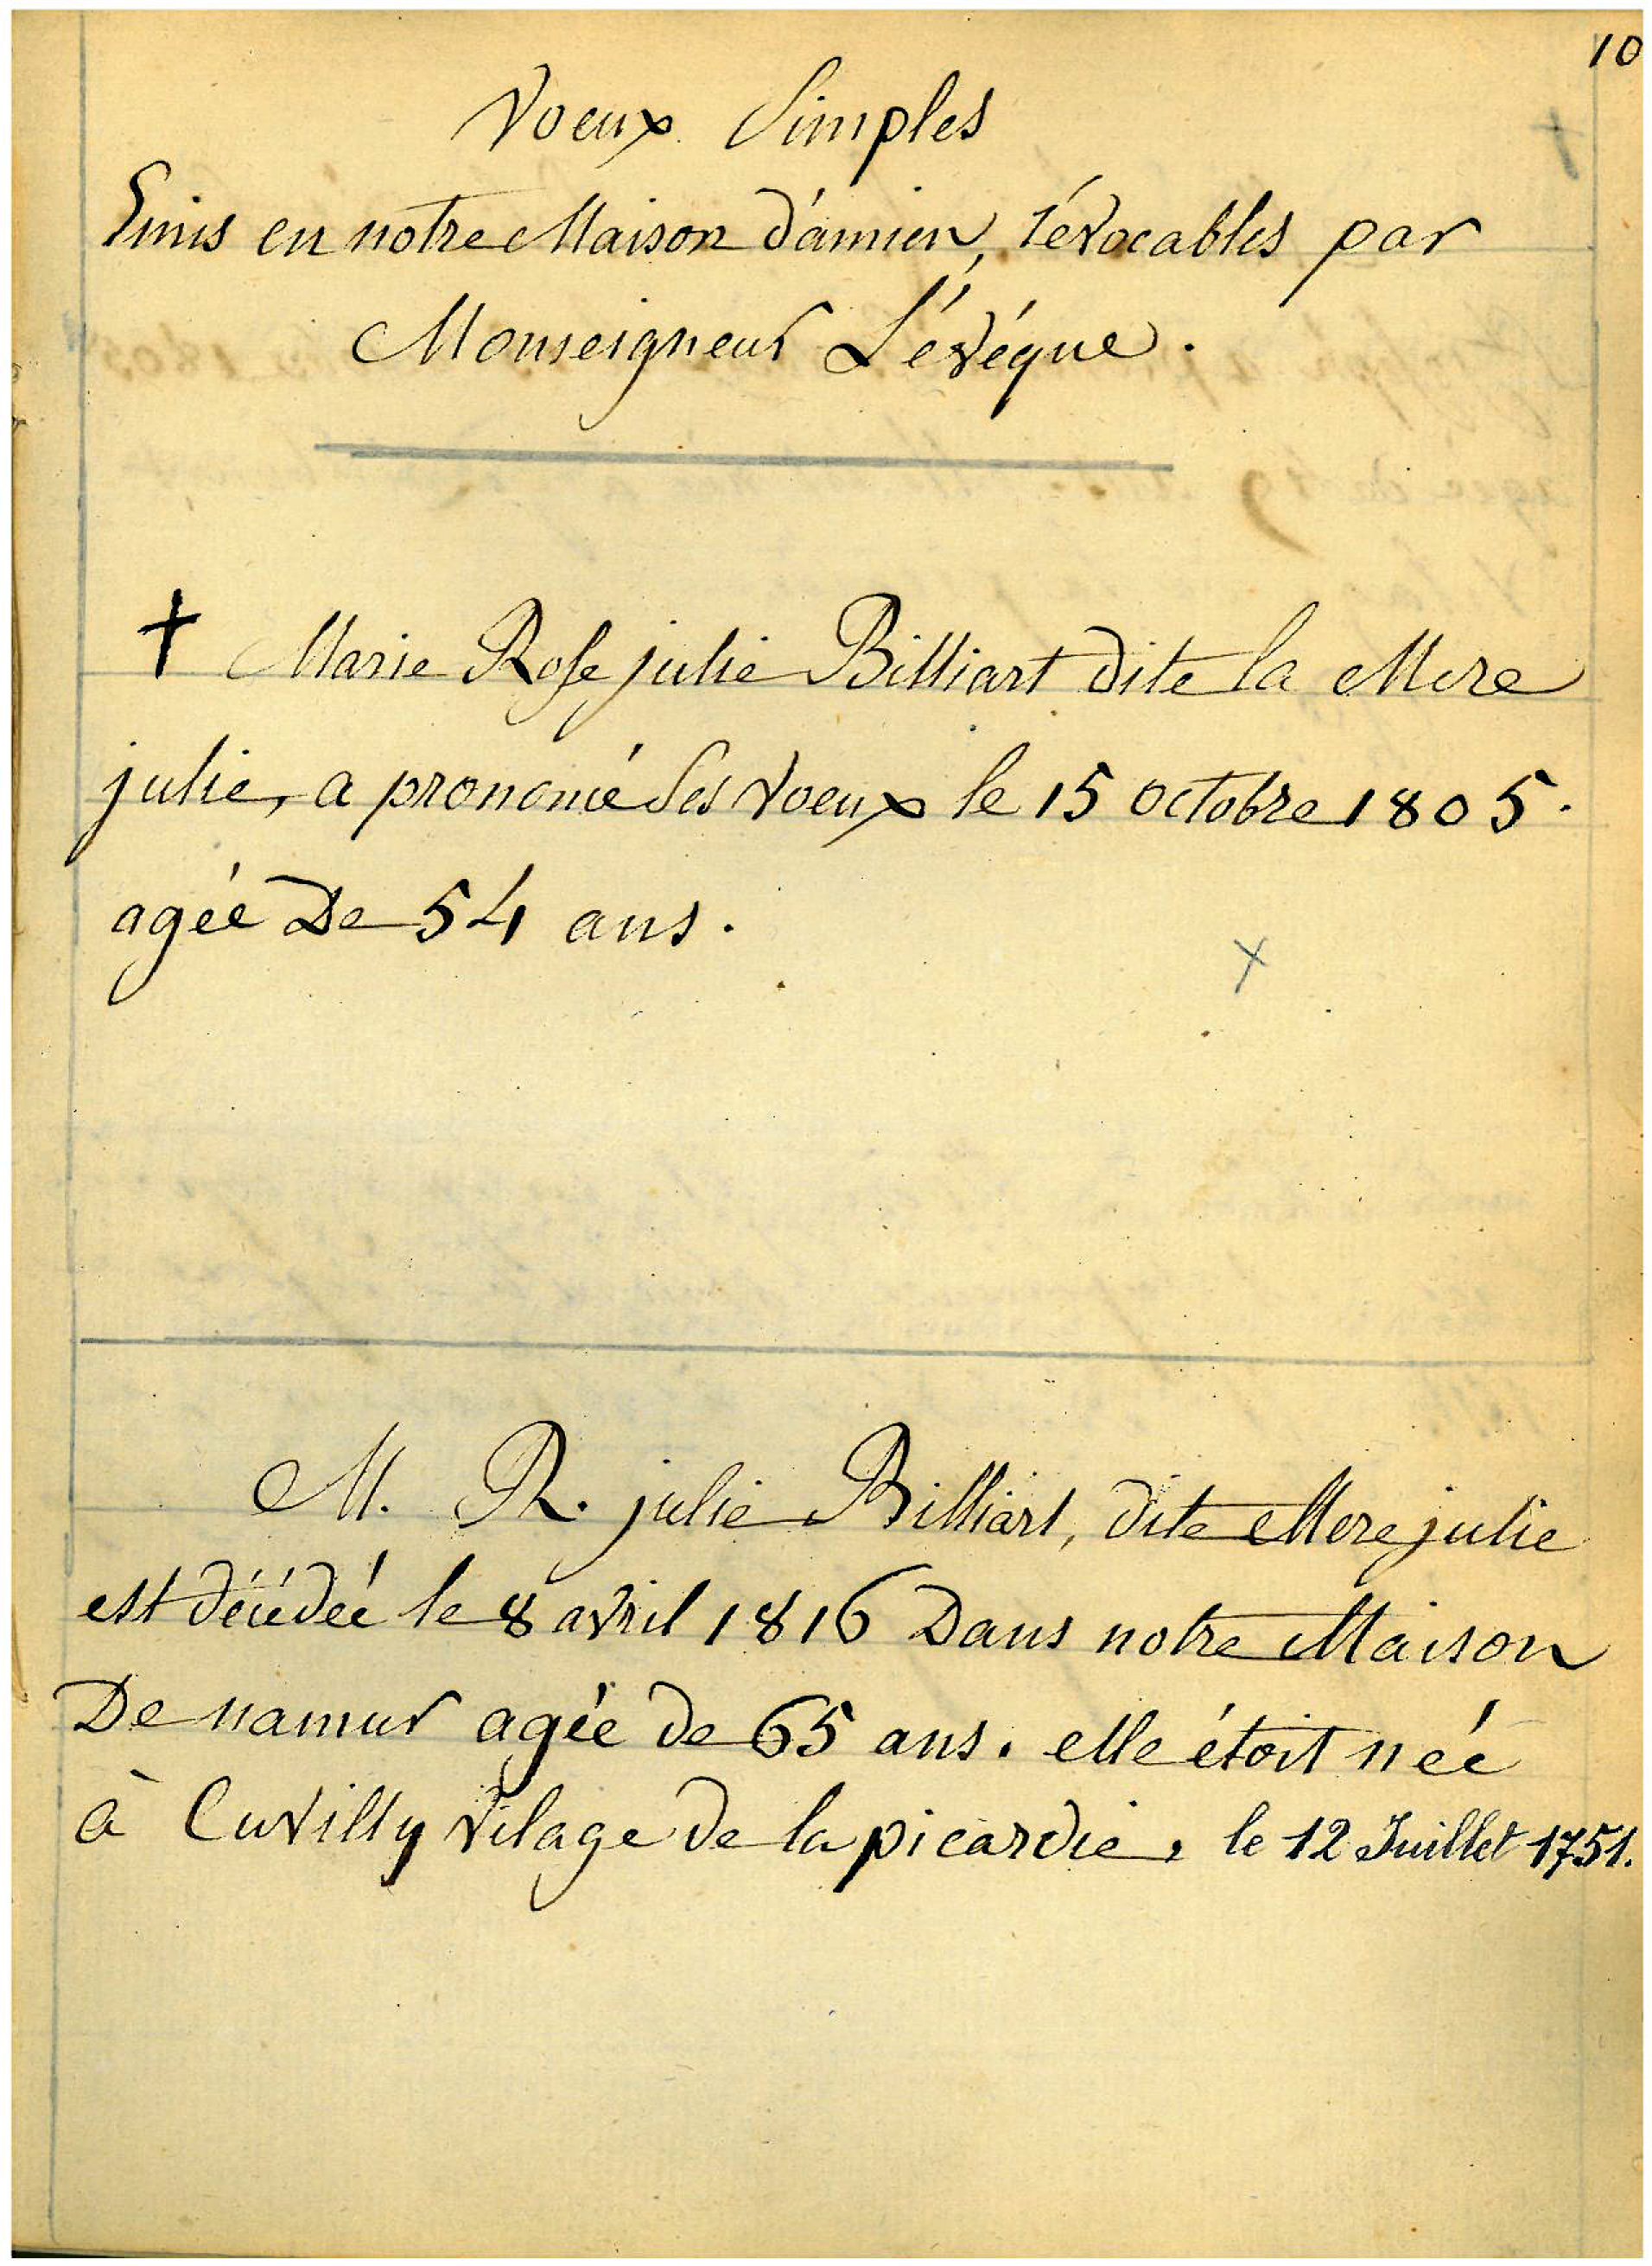 10
Voeux Simples
Emis en notre Maison d'amien, révocables par
Monseigneur L'évéque.
† Marie Rose julie Billiart dite la Mere
julie, a prononcé Ses Voeux le 15 octobre 1805.
agée De 54 ans.
M. R. julie Billiart, dite Mere julie
est décédée le 8 avril 1816 Dans notre Maison
De namur agée de 65 ans. elle étoit née
à Cuvilly vilage de la picardie, le 12 Juillet 1751.